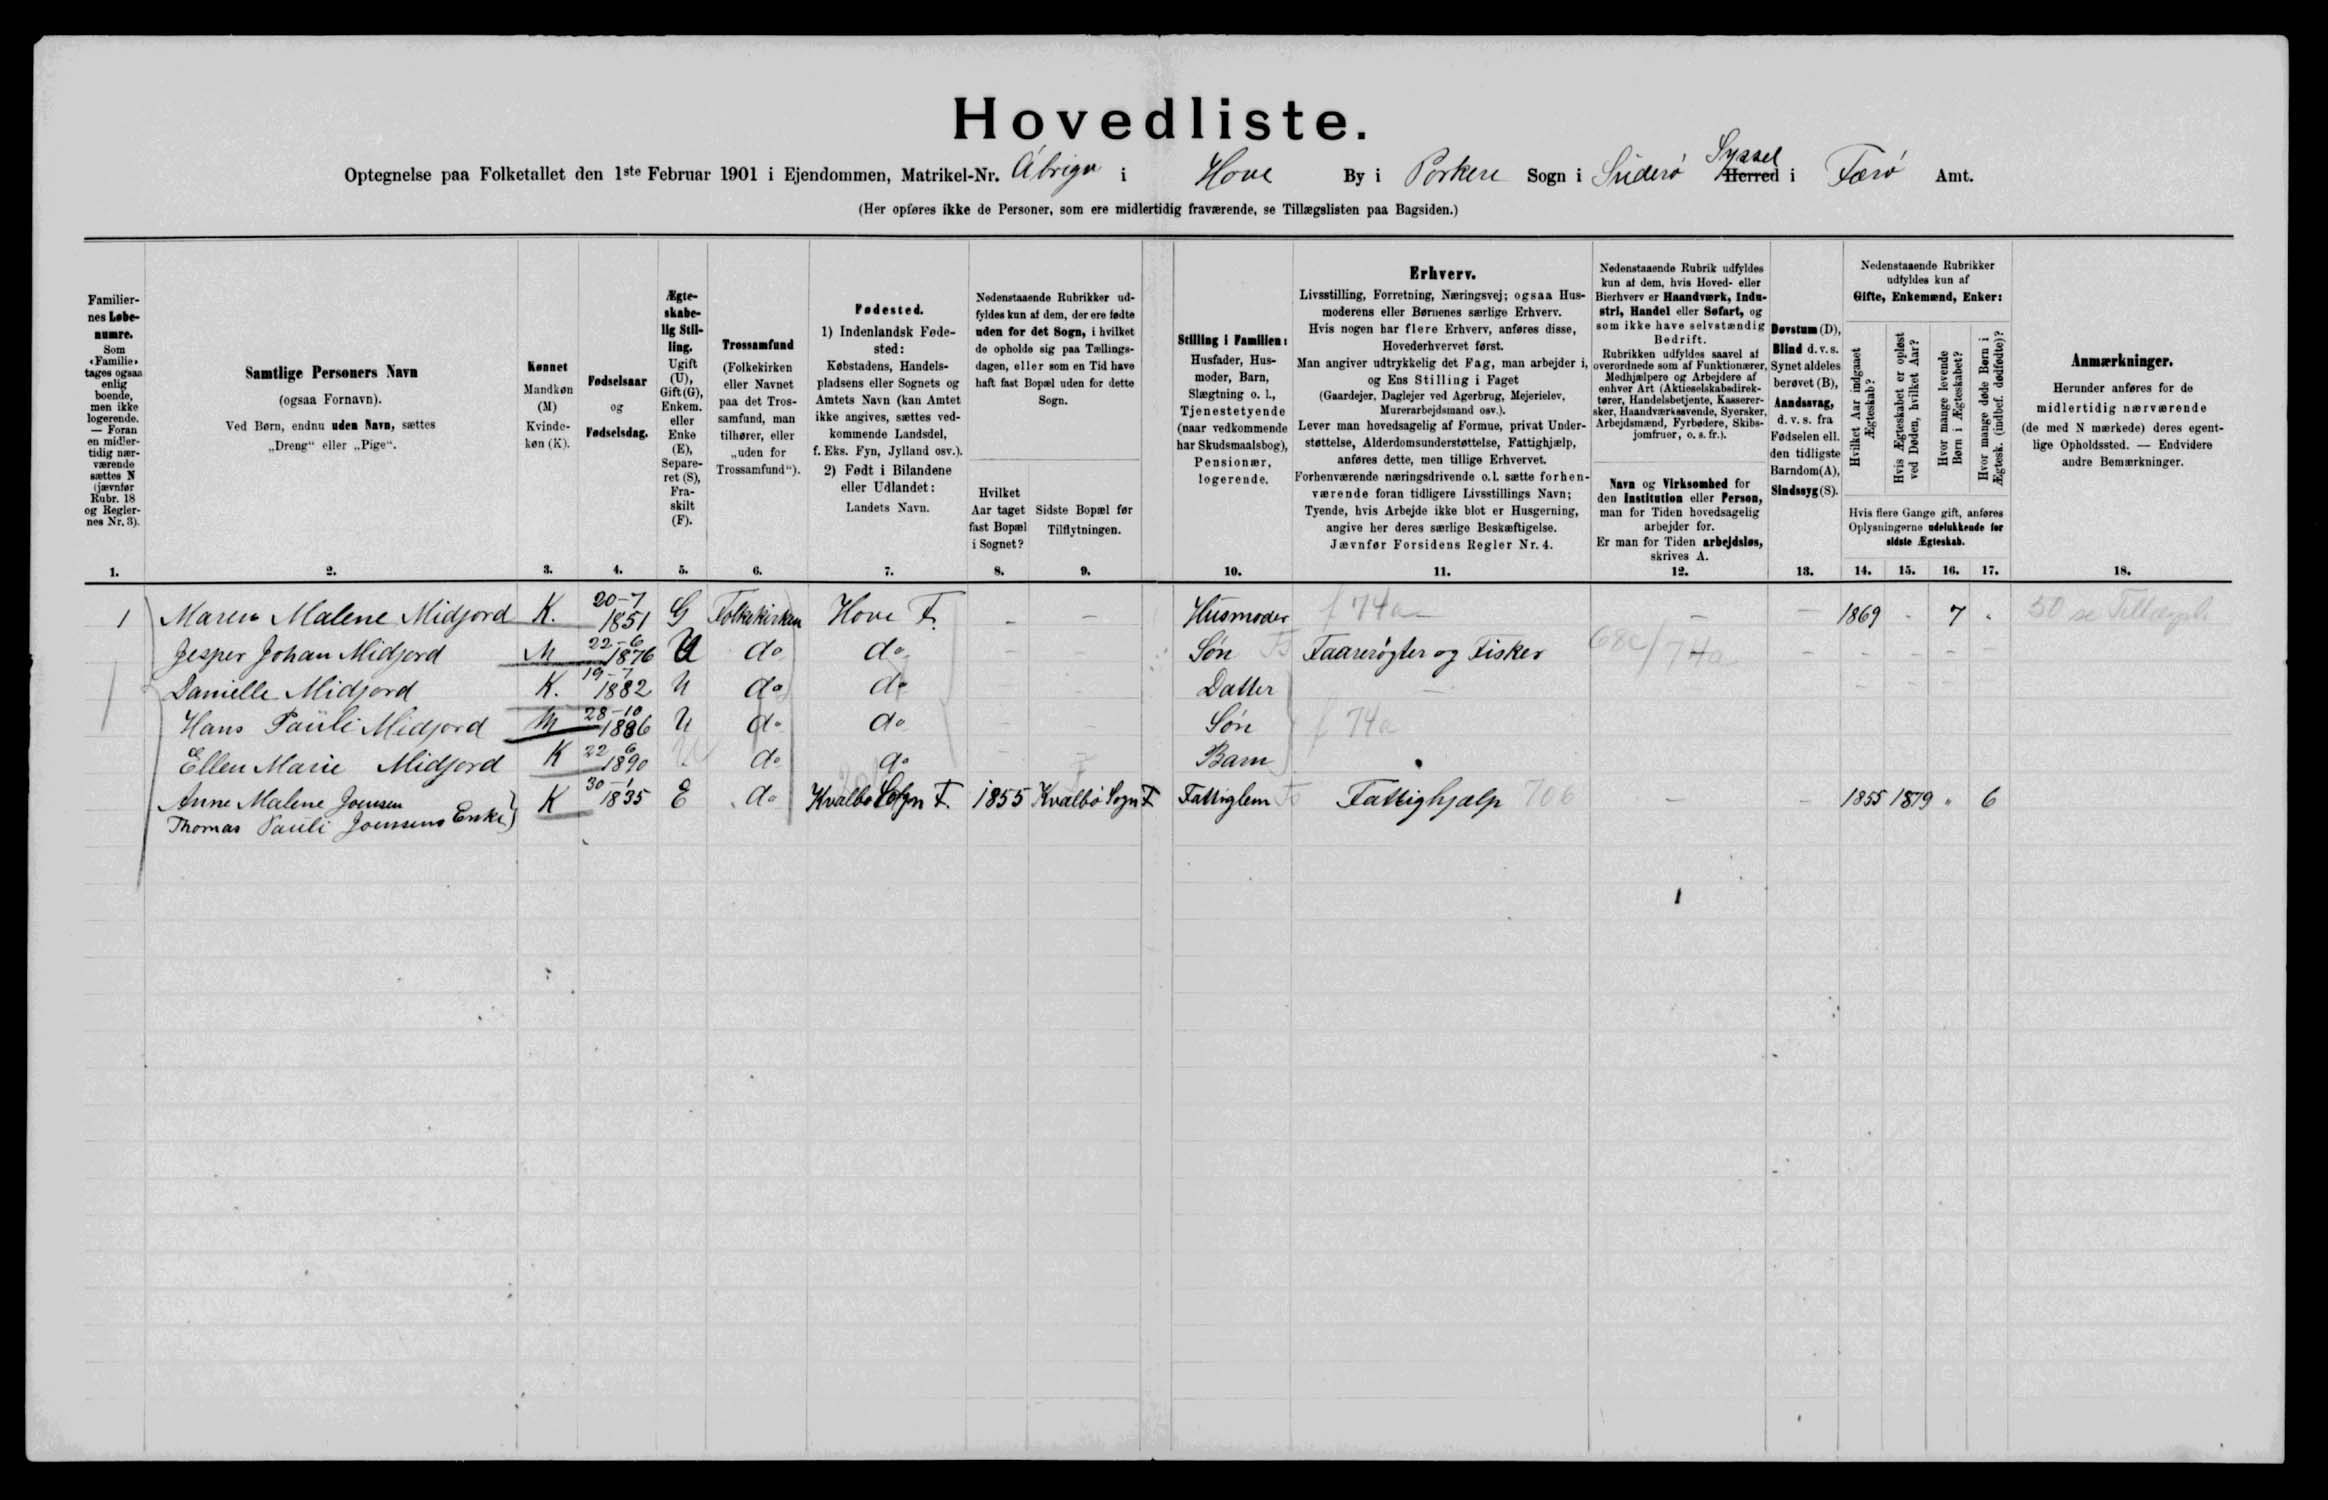 Hovedliste.
Optegnelse paa Folketallet den 1ste Februar 1901 i Ejendommen, Matrikel-Nr. Ábrigv i Hove By i Porkere Sogn i Suderø Syssel Herred i Færø Amt.
(Her opføres ikke de Personer, som ere midlertidig fraværende, se Tillægslisten paa Bagsiden.)
Familier-
nes Løbe-
numre.
Som
«Familie»
tages ogsaa
enlig
boende,
men ikke
logerende.
— Foran
en midler-
tidig nær-
værende
sættes N
(jævnfør
Rubr. 18
og Regler-
nes Nr. 3).
1.
Samtlige Personers Navn
(ogsaa Fornavn).
Ved Børn, endnu uden Navn, sættes
„Dreng“ eller „Pige“.
2.
Kønnet
Mandkøn
(M)
Kvinde-
køn (K).
3.
Fødselsaar
og
Fødselsdag.
4.
Ægte-
skabe-
lig Stil-
ling.
Ugift
(U),
Gift (G),
Enkem.
eller
Enke
(E),
Separe-
ret (S),
Fra-
skilt
(F).
5.
Trossamfund
(Folkekirken
eller Navnet
paa det Tros-
samfund, man
tilhører, eller
„uden for
Trossamfund“).
6.
Fødested.
1) Indenlandsk Føde-
sted:
Købstadens, Handels-
pladsens eller Sognets og
Amtets Navn (kan Amtet
ikke angives, sættes ved-
kommende Landsdel,
f. Eks. Fyn, Jylland osv.).
2) Født i Bilandene
eller Udlandet:
Landets Navn.
7.
Nedenstaaende Rubrikker ud-
fyldes kun af dem, der ere fødte
uden for det Sogn, i hvilket
de opholde sig paa Tællings-
dagen, eller som en Tid have
haft fast Bopæl uden for dette
Sogn.
Hvilket
Aar taget
fast Bopæl
i Sognet?
8.
Sidste Bopæl før
Tilflytningen.
9.
Stilling i Familien:
Husfader, Hus-
moder, Barn,
Slægtning o. l.,
Tjenestetyende
(naar vedkommende
har Skudsmaalsbog),
Pensionær,
logerende.
10.
Erhverv.
Livsstilling, Forretning, Næringsvej; ogsaa Hus-
moderens eller Børnenes særlige Erhverv.
Hvis nogen har flere Erhverv, anføres disse,
Hovederhvervet først.
Man angiver udtrykkelig det Fag, man arbejder i,
og Ens Stilling i Faget
(Gaardejer, Daglejer ved Agerbrug, Mejerielev,
Murerarbejdsmand osv.).
Lever man hovedsagelig af Formue, privat Under-
støttelse, Alderdomsunderstøttelse, Fattighjælp,
anføres dette, men tillige Erhvervet.
Forhenværende næringsdrivende o.l. sætte forhen-
værende foran tidligere Livsstillings Navn;
Tyende, hvis Arbejde ikke blot er Husgerning,
angive her deres særlige Beskæftigelse.
Jævnfør Forsidens Regler Nr. 4.
11.
Nedenstaaende Rubrik udfyldes
kun af dem, hvis Hoved- eller
Bierhverv er Haandværk, Indu-
stri, Handel eller Søfart, og
som ikke have selvstændig
Bedrift.
Rubrikken udfyldes saavel af
overordnede som af Funktionærer,
Medhjælpere og Arbejdere af
enhver Art (Aktieselskabsdirek-
tører, Handelsbetjente, Kasserer-
sker, Haandværkssvende, Syersker,
Arbejdsmænd, Fyrbødere, Skibs-
jomfruer, o. s. fr.).
Navn og Virksomhed for
den Institution eller Person,
man for Tiden hovedsagelig
arbejder for.
Er man for Tiden arbejdsløs,
skrives A.
12.
Døvstum (D),
Blind d. v. s.
Synet aldeles
berøvet (B),
Aandssvag,
d. v. s. fra
Fødselen ell.
den tidligste
Barndom (A),
Sindssyg (S).
13.
Nedenstaaende Rubrikker
udfyldes kun af
Gifte, Enkemænd, Enker:
Hvilket Aar indgaaet
Ægteskab?
Hvis Ægteskabet er opløst
ved Døden, hvilket Aar?
Hvor mange levende
Børn i Ægteskabet?
Hvor mange døde Børn i
Ægtesk. (indbef. dødfødte)?
Hvis flere Gange gift, anføres
Oplysningerne udelukkende for
sidste Ægteskab.
14. 15. 16. 17.
Anmærkninger.
Herunder anføres for de
midlertidig nærværende
(de med N mærkede) deres egent-
lige Opholdssted. — Endvidere
andre Bemærkninger.
18.
1 Maren Malene Midjord K. 20-7 1851 G Folkekirken Hove F. - - Husmoder f 74a - - 1869 - 7 " 50 se Tillægsl.
Jesper Johan Midjord M 22-6 1876 U do do - Søn Faarerøgter og Fisker 68c/74a - - - - -
Danielle Midjord K. 19-7 1882 U do do Datter - - - -
Hans Pauli Midjord M 28-10 1886 U do do - - Søn f 74a
Ellen Marie Midjord K 22 6 1890 U do do - Barn
Anne Malene Joensen K 30-1 1835 E do Kvalbø Sogn F. 1855 Kvalbø Sogn F. Fattiglem Fattighjælp 706 - - 1855 1879 " 6
Thomas Pauli Joensens Enke